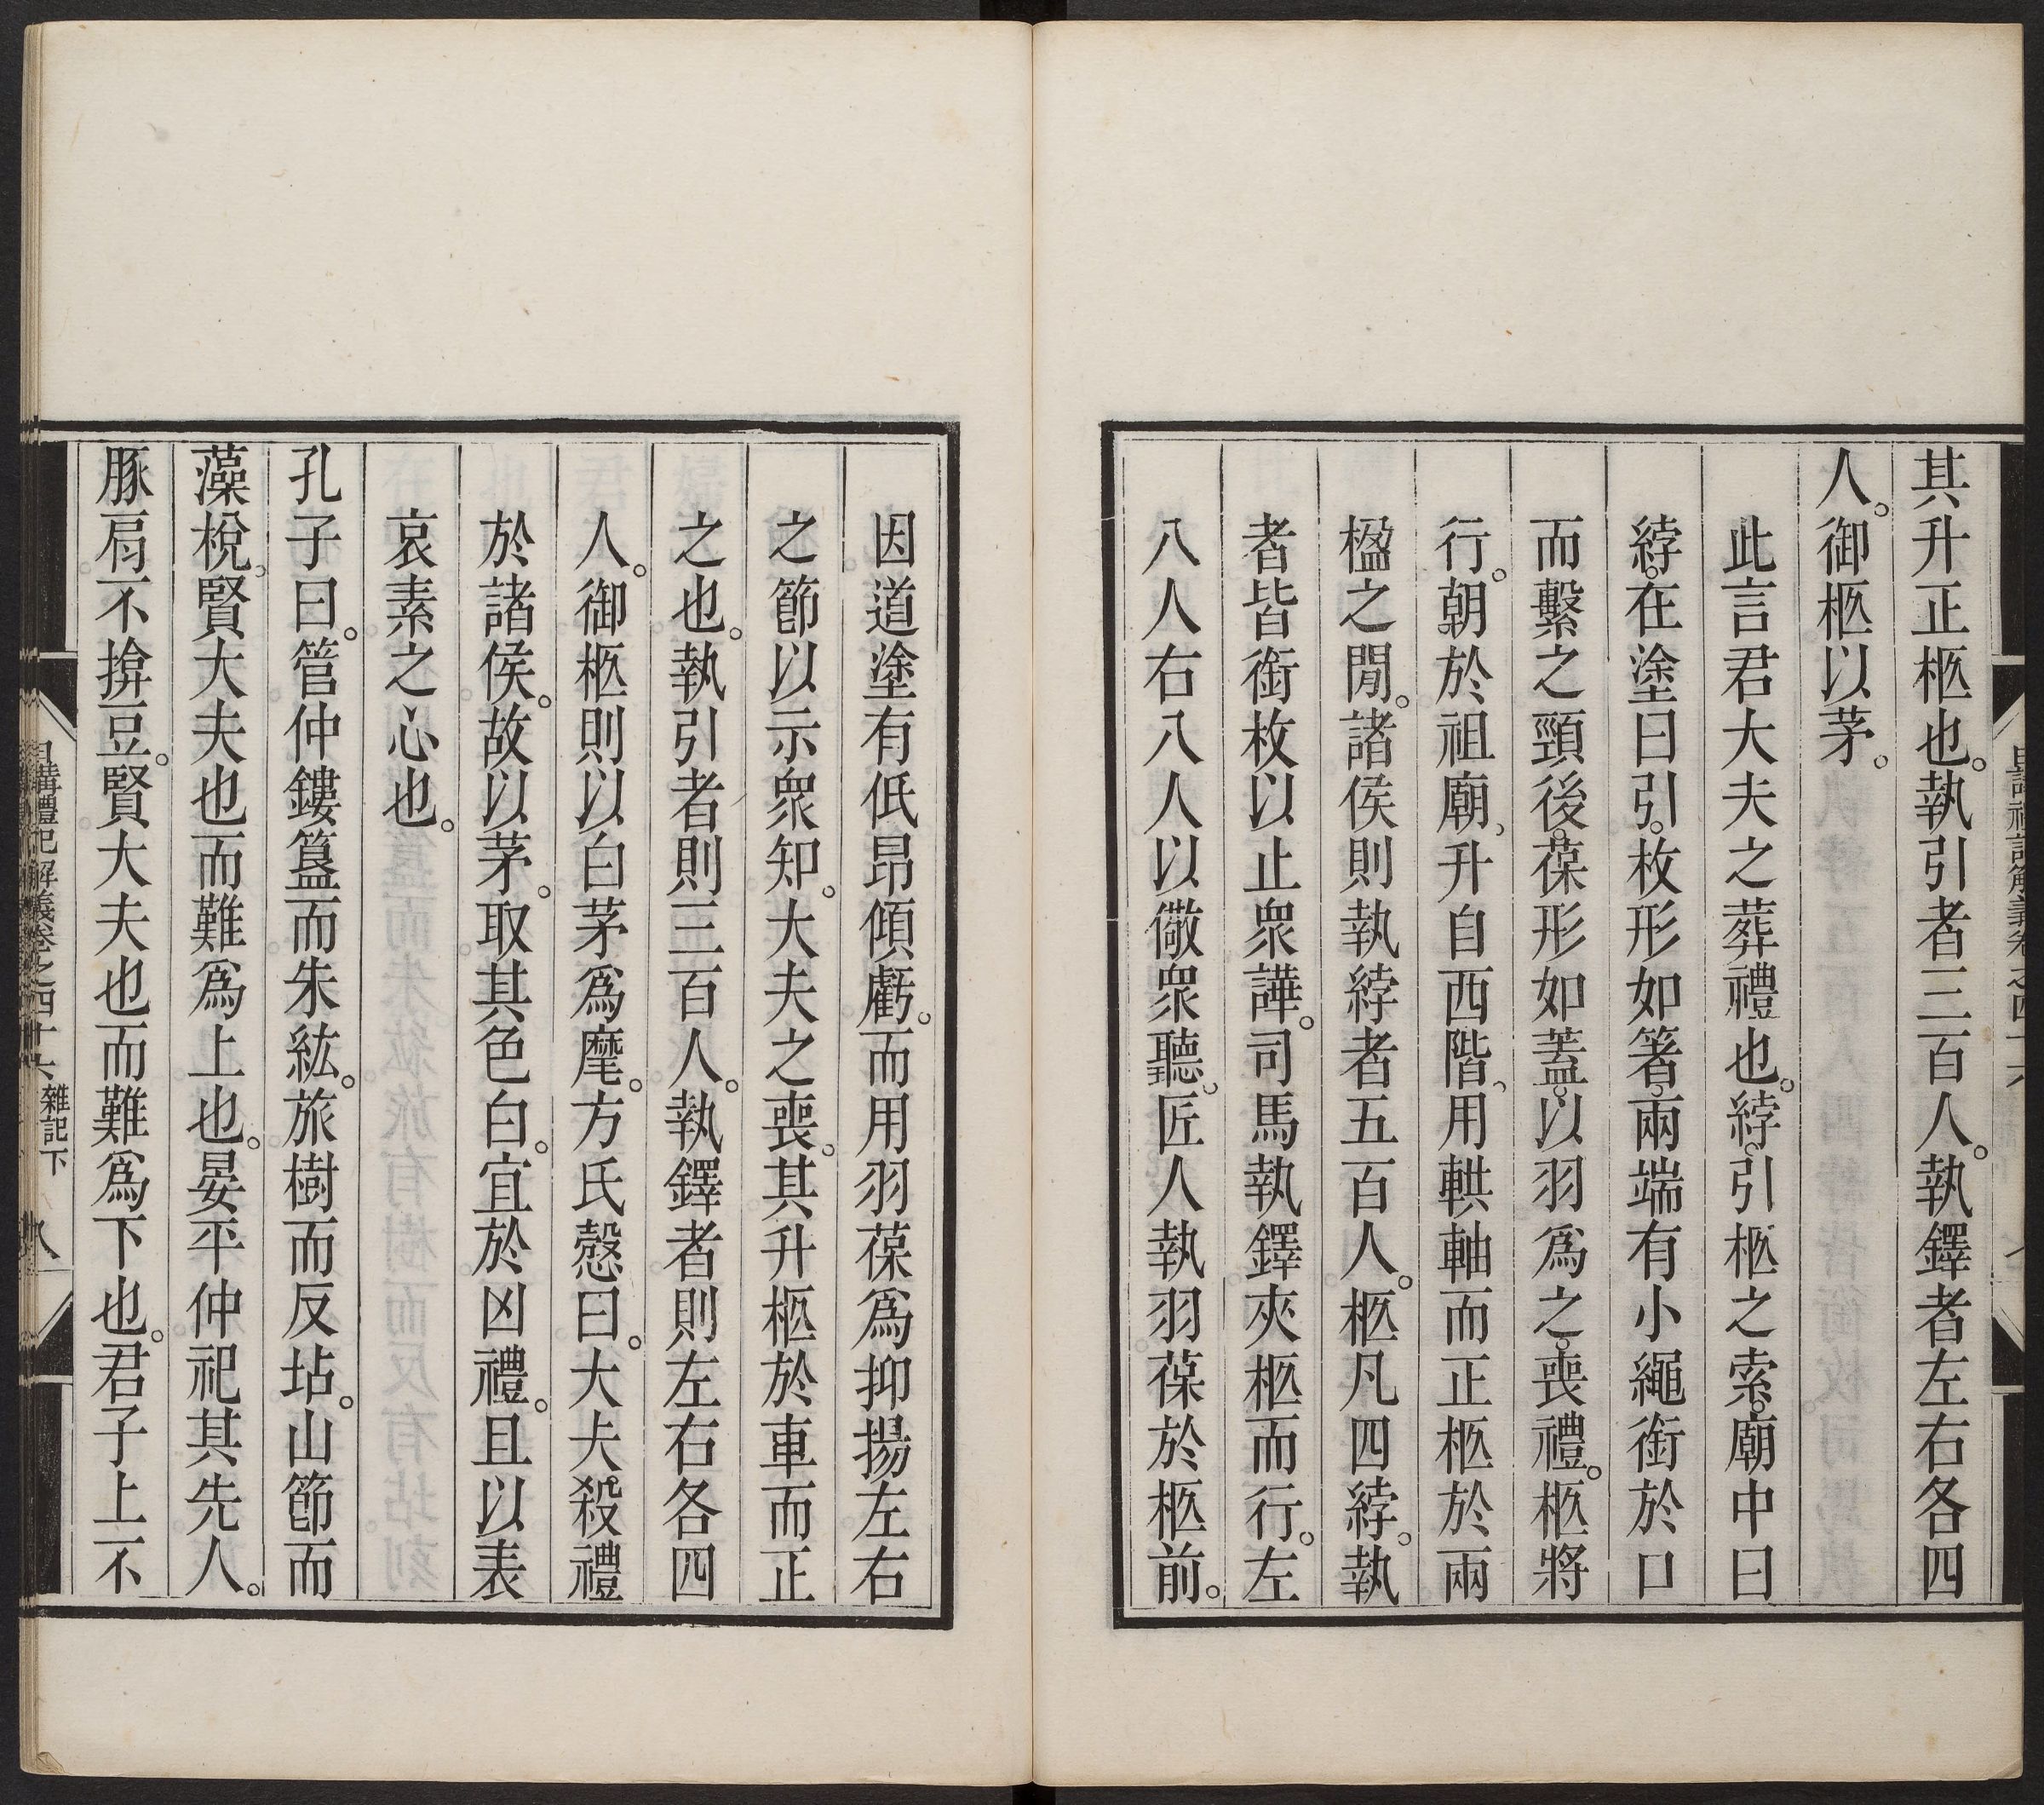 其升正柩也。執引者三百人。執鐸者左右各四
人。御柩以茅。
此言君大夫之葬禮也。綍。引柩之索。廟中曰
綍。在塗曰引。枚形如箸。兩端有小繩銜於口
而繫之頸後。葆形如蓋。以羽爲之。喪禮。柩將
行。朝於祖廟、升自西階、用輁軸而正柩於兩
楹之閒。諸侯則執綍者五百人。柩凡四綍。執
者皆銜枚以止衆譁。司馬執鐸夾柩而行。左
八人右八人以儆衆聽、匠人執羽葆於柩前。
因道塗有低昂傾虧。而用羽葆爲抑揚左右
之節以示衆知。大夫之喪。其升柩於車而正
之也。執引者則三百人。執鐸者則左右各四
人。御柩則以白茅爲麾。方氏慤曰。大夫殺禮
於諸侯。故以茅。取其色白。宜於凶禮。且以表
哀素之心也。
孔子曰。管仲鏤簋而朱紘。旅樹而反坫。山節而
藻梲。賢大夫也而難爲上也。晏平仲祀其先人。
豚肩不揜豆。賢大夫也而難爲下也。君子上不
日講禮記解義卷之四十六 雜記下 八